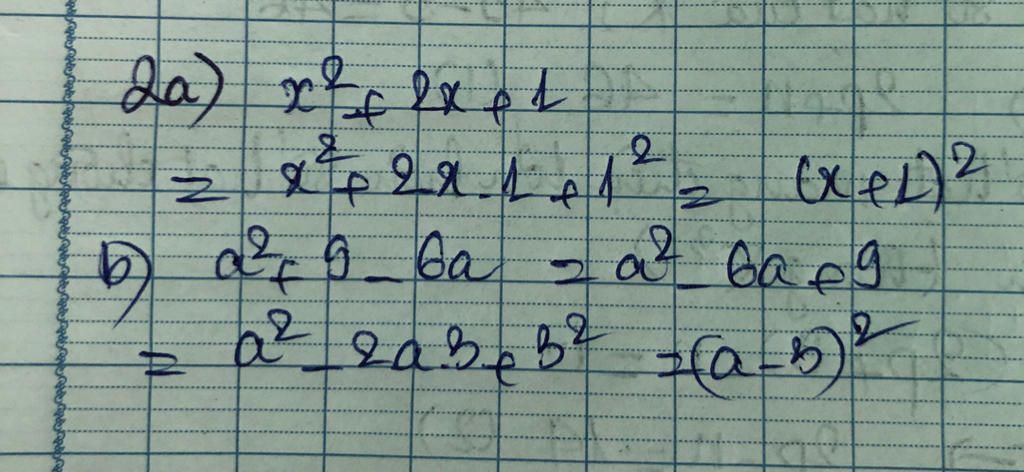 2a) x² + 2x + 1
= x² + 2x.1 + 1² = (x+1)²
b) a² + 9 - 6a = a² - 6a + 9
= a² - 2a.3 + 3² = (a-3)²